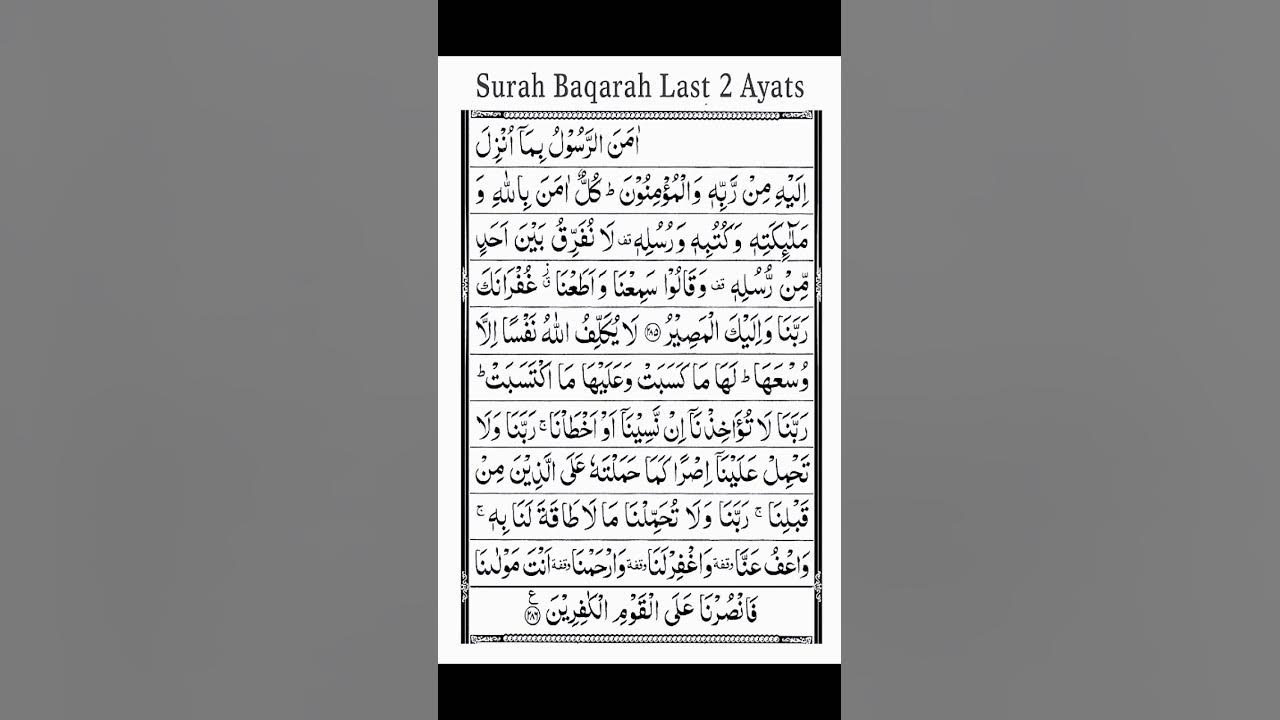 Surah Baqarah Last 2 Ayats
اٰمَنَ الرَّسُوْلُ بِمَاۤ اُنْزِلَ
اِلَيْهِ مِنْ رَّبِّهٖ وَالْمُؤْمِنُوْنَ ؕ كُلٌّ اٰمَنَ بِاللّٰهِ وَ
مَلٰٓئِكَتِهٖ وَكُتُبِهٖ وَرُسُلِهٖ قف لَا نُفَرِّقُ بَيْنَ اَحَدٍ
مِّنْ رُّسُلِهٖ قف وَقَالُوْا سَمِعْنَا وَاَطَعْنَا ز ق غُفْرَانَكَ
رَبَّنَا وَاِلَيْكَ الْمَصِيْرُ ﴿۲۸۵﴾ لَا يُكَلِّفُ اللّٰهُ نَفْسًا اِلَّا
وُسْعَهَا ؕ لَهَا مَا كَسَبَتْ وَعَلَيْهَا مَا اكْتَسَبَتْ ؕ
رَبَّنَا لَا تُؤَاخِذْنَاۤ اِنْ نَّسِيْنَاۤ اَوْ اَخْطَاْنَا ۚ رَبَّنَا وَلَا
تَحْمِلْ عَلَيْنَاۤ اِصْرًا كَمَا حَمَلْتَهٗ عَلَى الَّذِيْنَ مِنْ
قَبْلِنَا ۚ رَبَّنَا وَلَا تُحَمِّلْنَا مَا لَا طَاقَةَ لَنَا بِهٖ ۚ
وَاعْفُ عَنَّا وقفة وَاغْفِرْلَنَا وقفة وَارْحَمْنَا وقفة اَنْتَ مَوْلٰىنَا
فَانْصُرْنَا عَلَى الْقَوْمِ الْكٰفِرِيْنَ ﴿۲۸۶﴾ ع